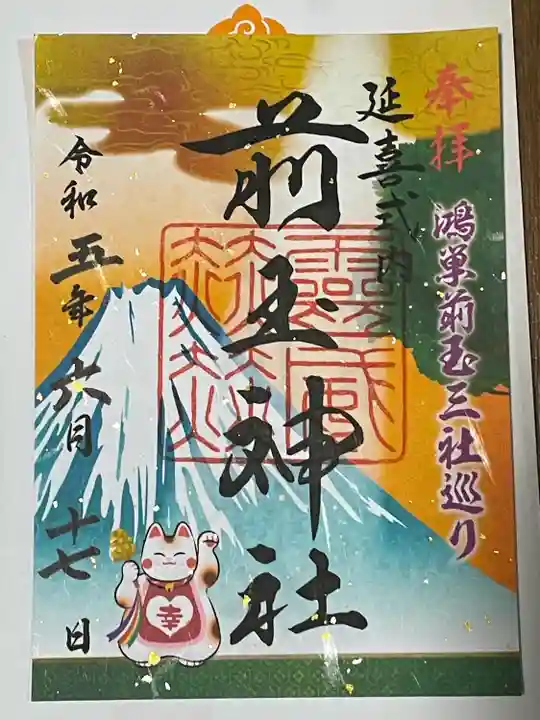 奉拝
鴻巣前玉三社巡り
延喜式内
前玉神社
令和五年六月十七日
幸